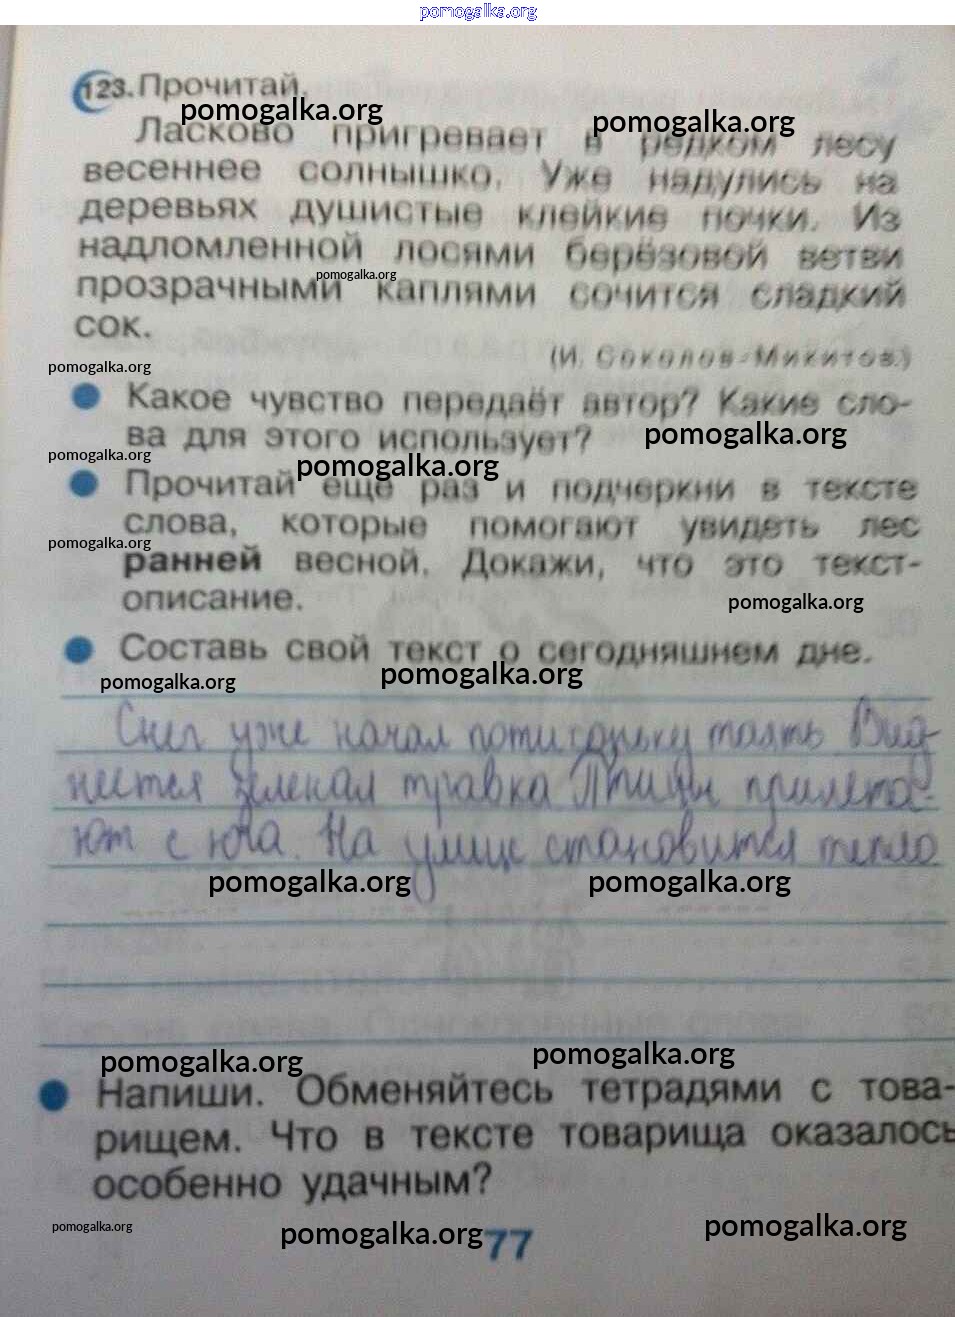 pomogalka.org
123. Прочитай.
pomogalka.org pomogalka.org
Ласково пригревает в редком лесу
весеннее солнышко. Уже надулись на
деревьях душистые клейкие почки. Из
надломленной лосями берёзовой ветви
pomogalka.org
прозрачными каплями сочится сладкий
сок.
(И. Соколов-Микитов.)
pomogalka.org
Какое чувство передаёт автор? Какие сло-
ва для этого использует?
pomogalka.org
pomogalka.org pomogalka.org
Прочитай ещё раз и подчеркни в тексте
слова, которые помогают увидеть лес
pomogalka.org
ранней весной. Докажи, что это текст-
описание.
pomogalka.org
Составь свой текст о сегодняшнем дне.
pomogalka.org pomogalka.org
Снег уже начал потихоньку таять Вид-
неется зеленая травка Птицы прилета-
ют с юга. На улице становится тепло
pomogalka.org pomogalka.org
pomogalka.org pomogalka.org
Напиши. Обменяйтесь тетрадями с това-
рищем. Что в тексте товарища оказалось
особенно удачным?
pomogalka.org pomogalka.org 77 pomogalka.org